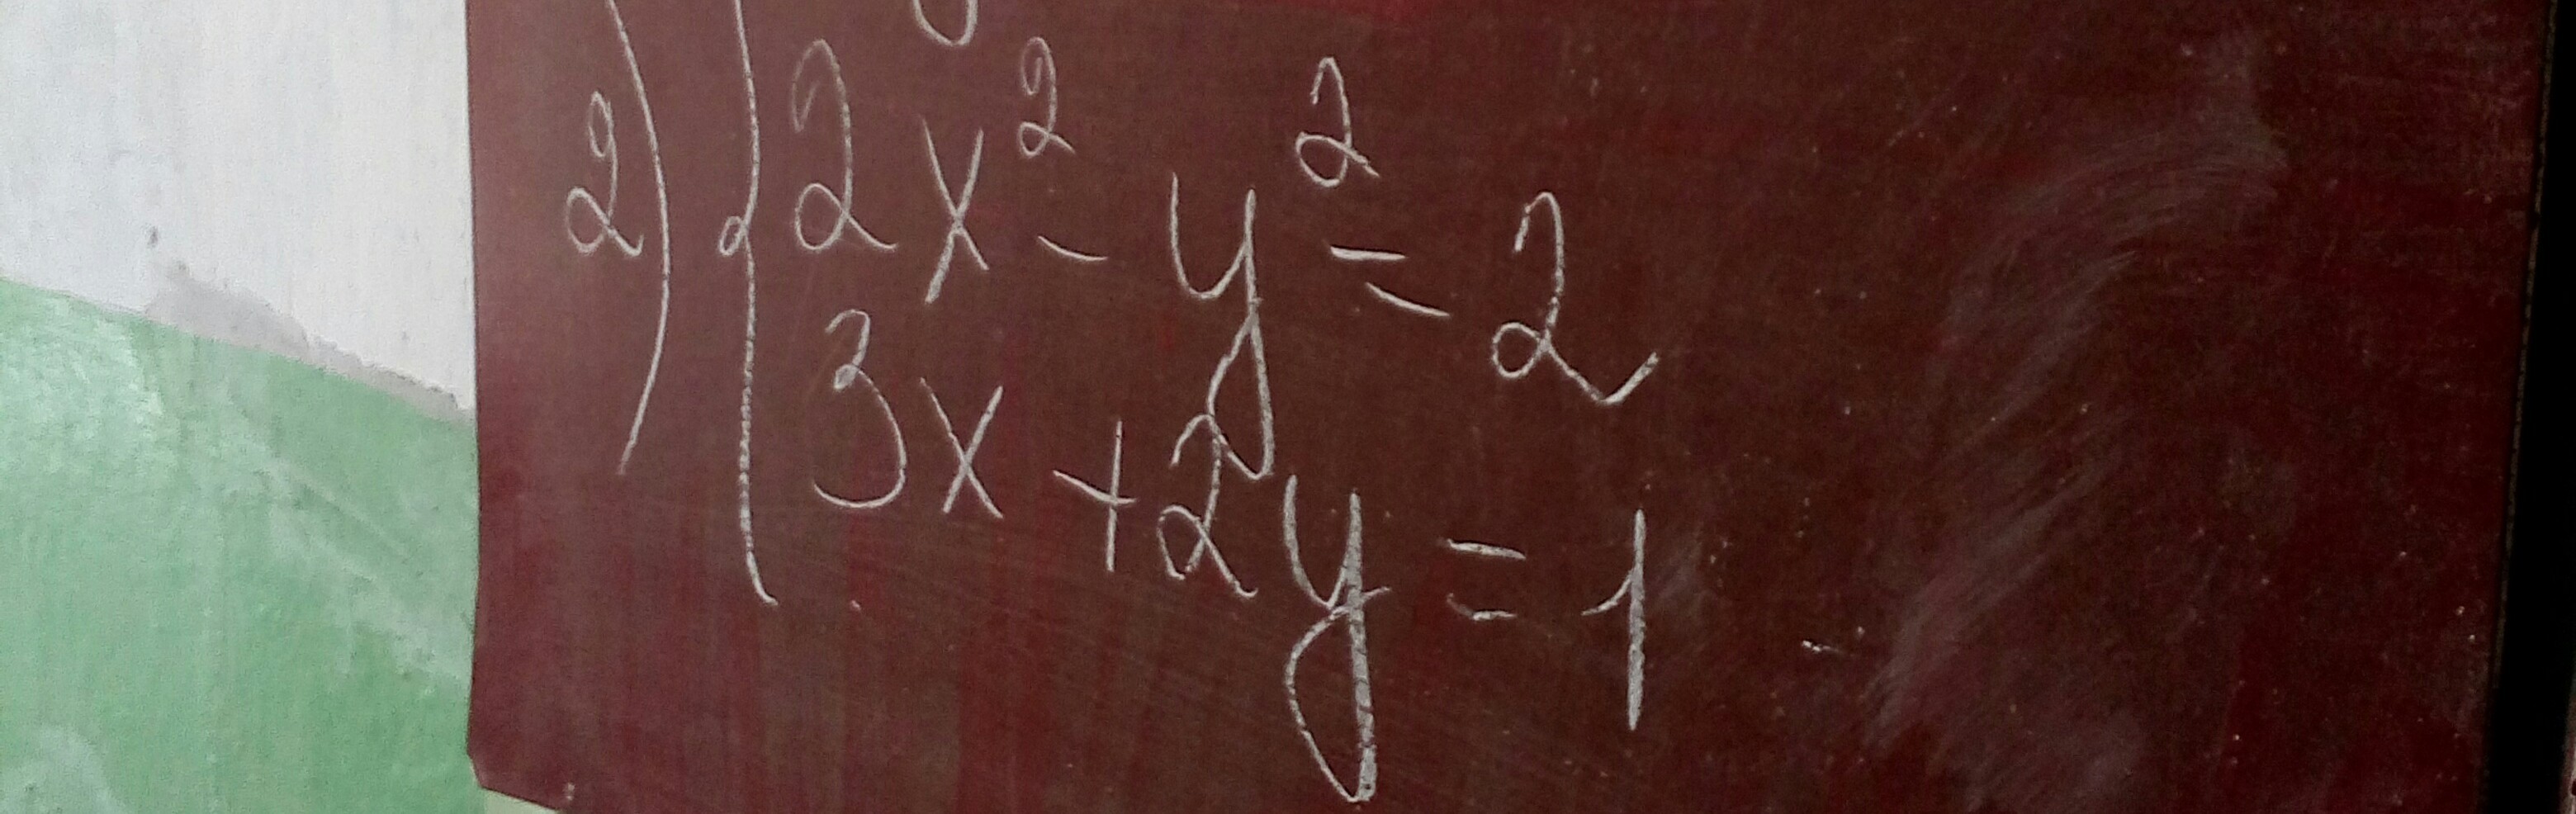 2) { 2x² - y² = 2
3x + 2y = 1